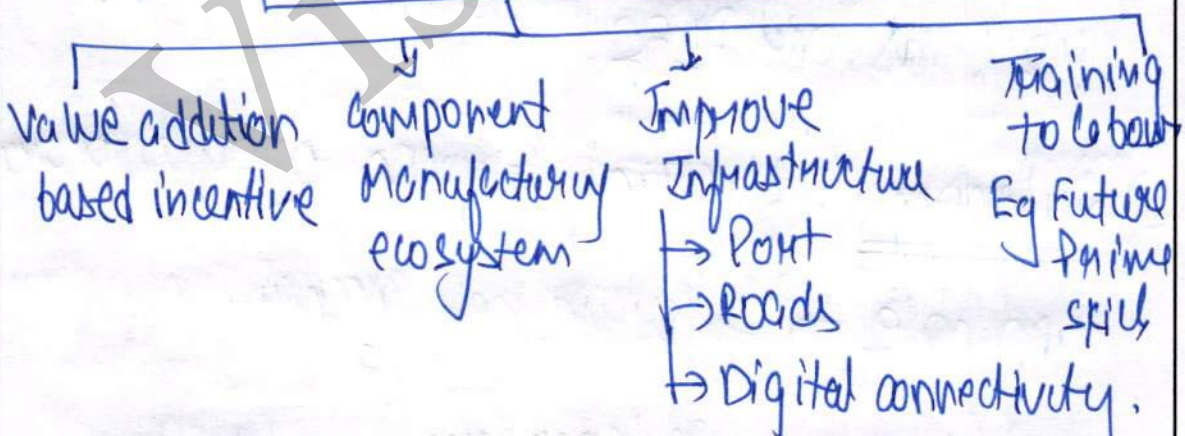 Value addition
based incentive
Component
Manufacturing
ecosystem
Improve
Infrastructure
→ Port
→ Roads
→ Digital connectivity.
Training
to labour
Eg Future
Prime
skills
VIS